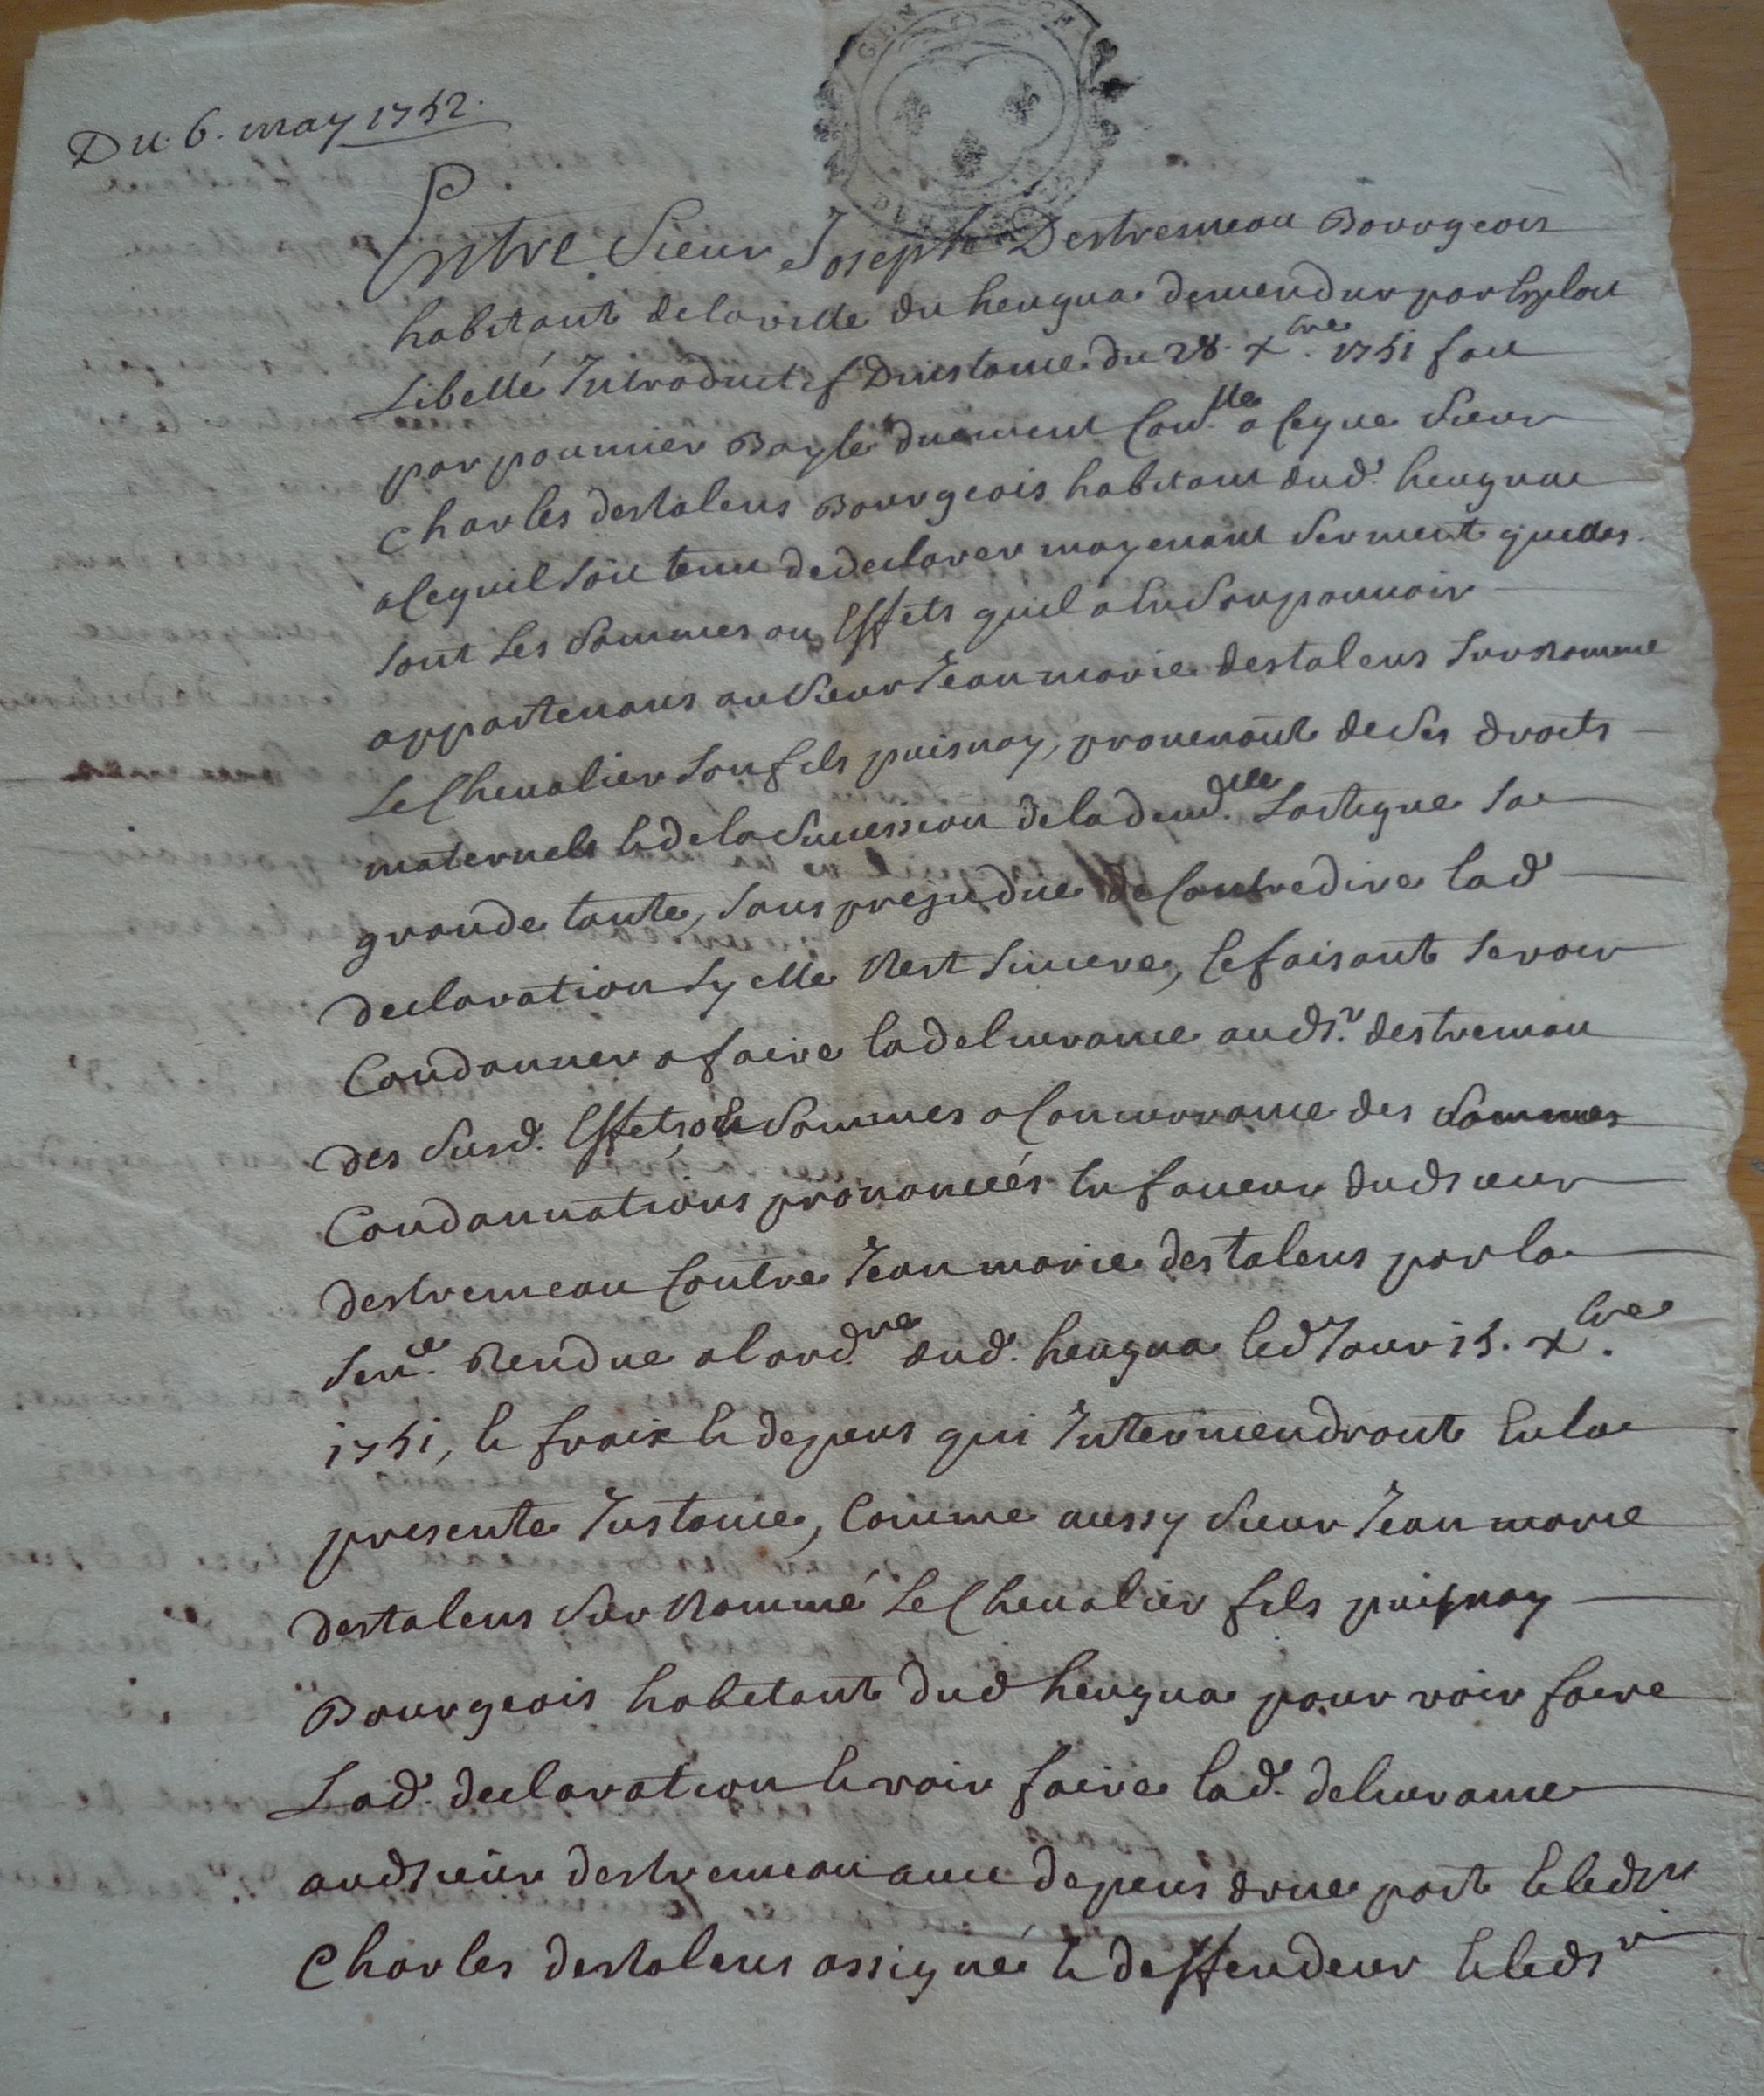 Du. 6. may 1752.
Entre Sieur Joseph Destremeau Bourgeois
habitant delaville du heugua demendur par Exploit
Libellé Introductif Dinstance du 28. xbre. 1751 fait
par poumier Bayle duement Con.lle a Ceque Sieur
Charles destalens Bourgeois habitant dud. heugua
a Cequil Soit tenu dedeclarer moyenant Serment quelles
Sont Les Sommes ou Effets quil a En Son pouuoir
appartenans au Sieur Jean marie destalens Surnommé
Le Chevalier Son fils puisnay, prouenant de Ses droits
maternels Et de la Succession de la dem.dlle Lartigue Sa
grande tante, Sans prejudice de Contredire Lad
declaration Sy elle Nest Sincere, Ce faisant Se voir
Condanner a faire la deliurance aud Sr. destremau
des Susd. Effets, Et Sommes a Concurrance des Sommes
Condannations prononcées En faueur dud Sieur
destremeau Contre Jean marie destalens par la
Senc.e Rendue a lord.re dud. heugua Led Jour 15. xbre.
1751, Et fraix Et depens qui Interuiendront En la
presente Instance, Comme aussy Sieur Jean marie
destalens Sur Nommé Le Chevalier fils puisnay
Bourgeois habitant dud heugua pour voir faire
Lad. declaration Et voir faire Lad. deliurance
aud Sieur destremeau auec depens dvne part Et Led Sr
Charles destalens assigné Et deffendeur Et Led Sr